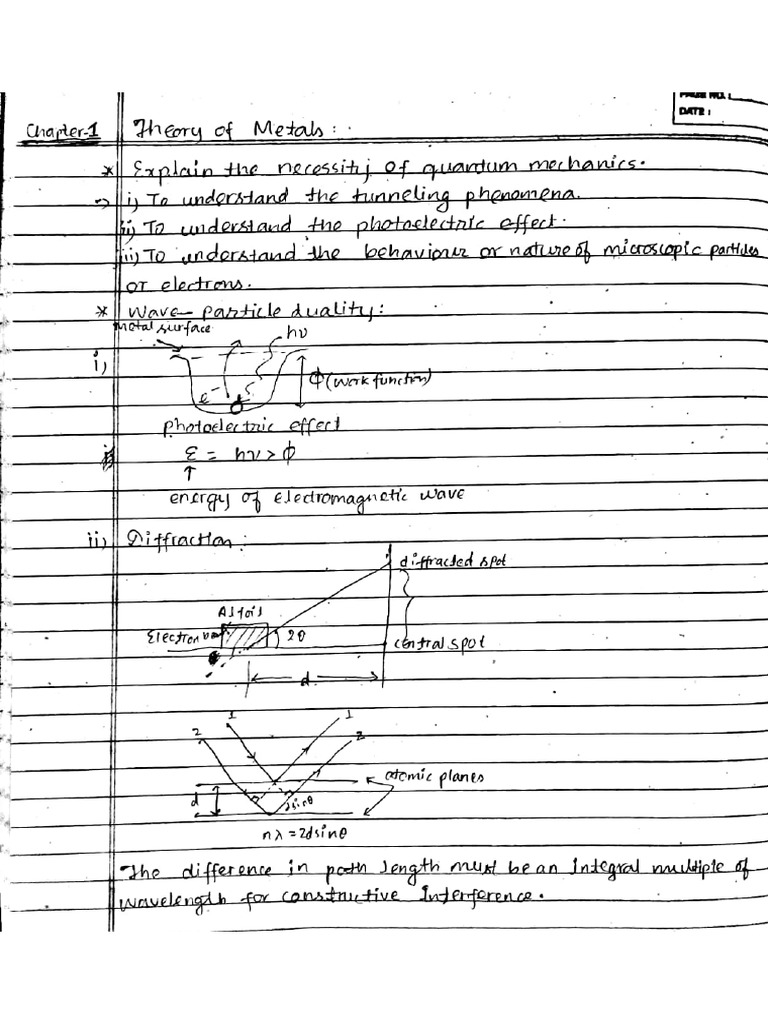 PAGE NO.:
DATE:
Chapter-1 Theory of Metals:
* Explain the necessity of quantum mechanics.
→ i) To understand the tunneling phenomena.
ii) To understand the photoelectric effect.
iii) To understand the behaviour or nature of microscopic particles
or electrons.
* Wave-particle duality:
metal surface
hν
i)
e⁻
Φ (work function)
photoelectric effect
ε = hν > Φ
↑
energy of electromagnetic wave
ii) Diffraction:
diffracted spot
Al foil
Electron
2θ
central spot
d
1 1
2 2
atomic planes
d
dsinθ
nλ = 2dsinθ
The difference in path length must be an integral multiple of
wavelength for constructive Interference.